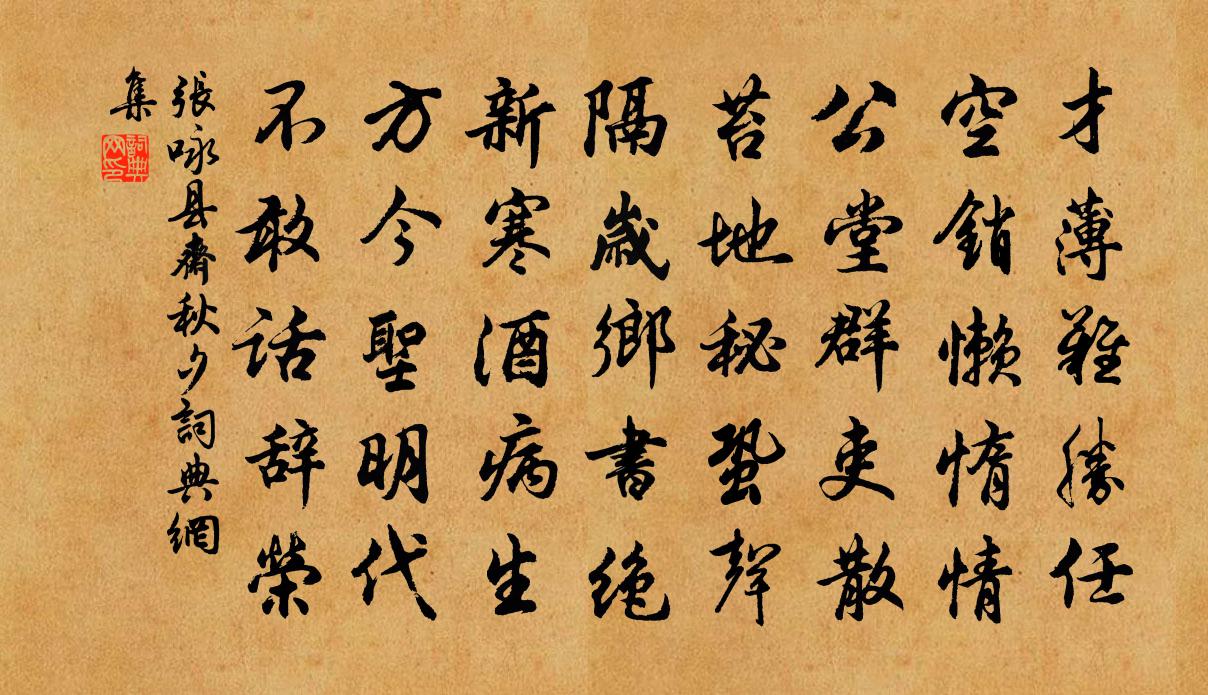 才薄難勝任
空銷懶惰情
公堂群吏散
苔地秘蛩聲
隔歲鄉書絕
新寒酒病生
方今聖明代
不敢話辞榮
張咏县齋秋夕詞典網
集
詞典网印